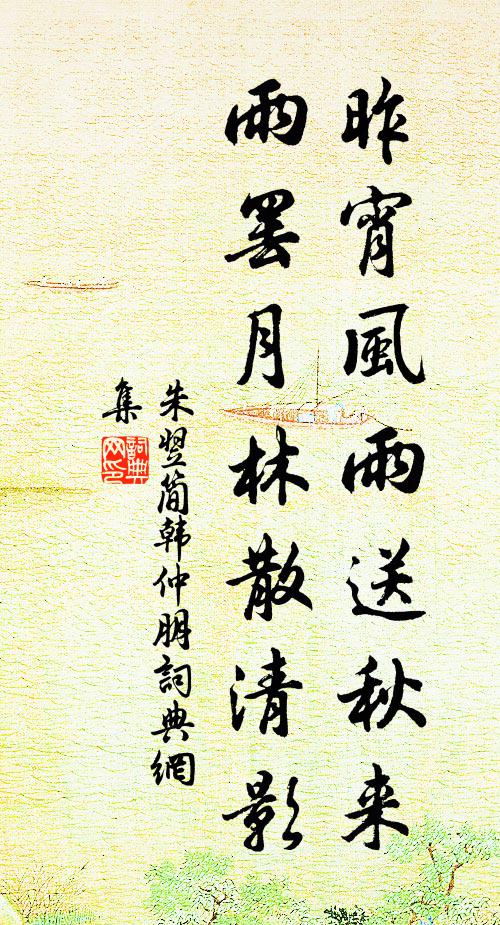 昨宵風雨送秋来
雨罢月林散清影
朱翌简韩仲朋詞典網
集
詞典网印